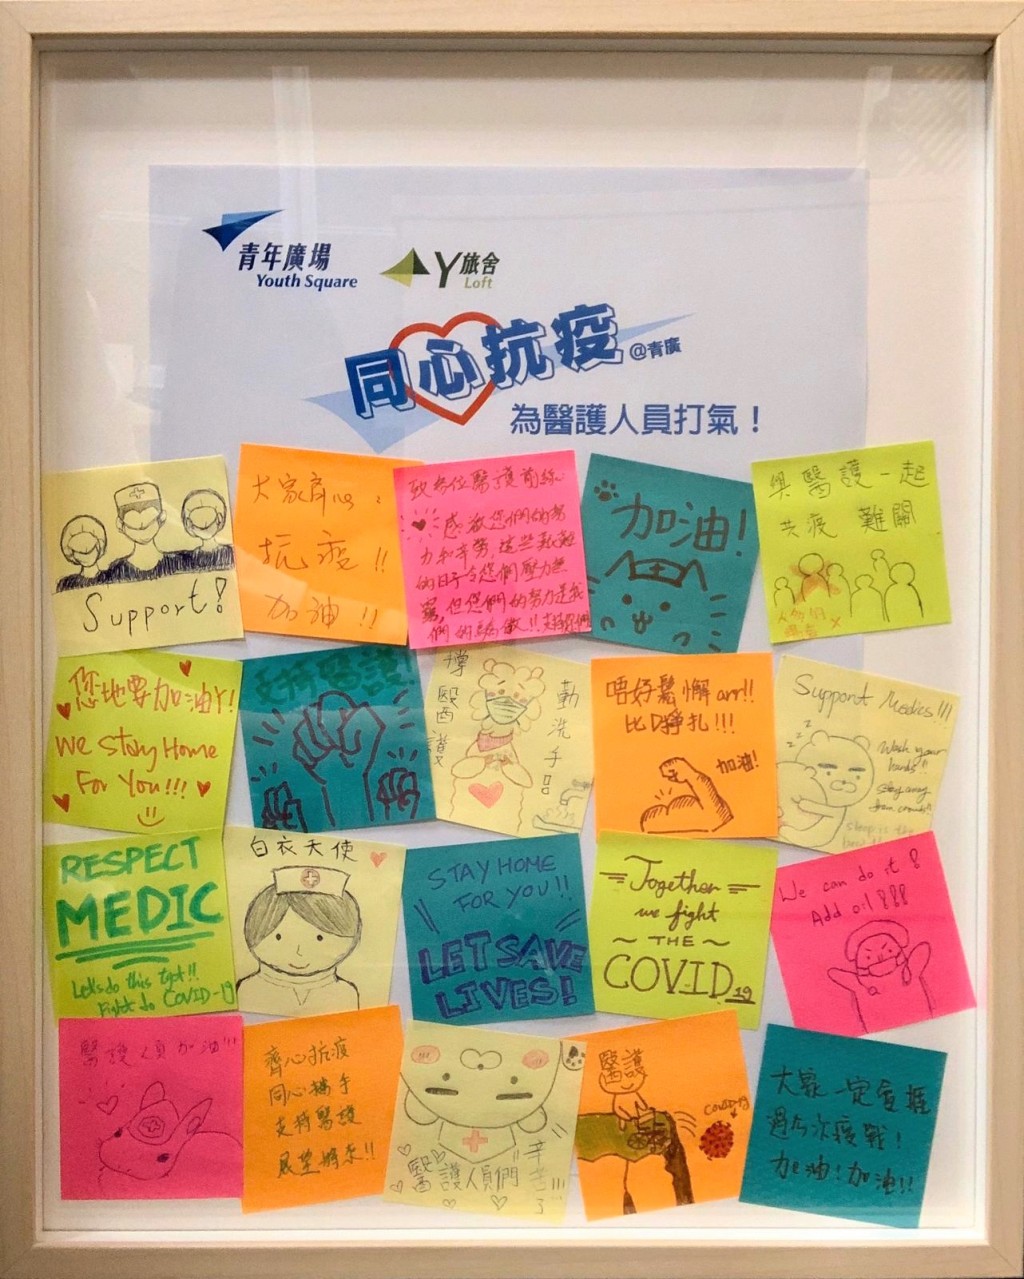 青年廣場
Youth Square
Y旅舍
Loft
同心抗疫
@青廣
為醫護人員打氣！
Support!
大家齊心
抗疫!!
加油!!
致各位醫護前線
感激您們的努
力和辛勞,這些艱難
的日子令您們壓力無
窮,但您們的努力是我
們的驕傲!!支持你們
加油!
與醫護一起
共疫難關
您地要加油丫!
We Stay Home
For You!!!
支持醫護!
撐醫護
勤洗手
唔好鬆懈arr!!
比D掙扎!!!
加油!
Support Medics!!!
zzz
Wash your
hands!!
stay away
from crowds!!
sleep is the
RESPECT
MEDIC
Let's do this tgt!!
Fight do COVID-19
白衣天使
STAY HOME
FOR YOU!!
LET SAVE
LIVES!
Together
we fight
~THE~
COVID19
We can do it!
Add oil!!!
醫護人員加油!!!
齊心抗疫
同心攜手
支持醫護
展望將來!!
醫護人員們
辛苦了!!!
醫護
COVID-19
大家一定會捱
過今次疫戰!
加油!加油!!